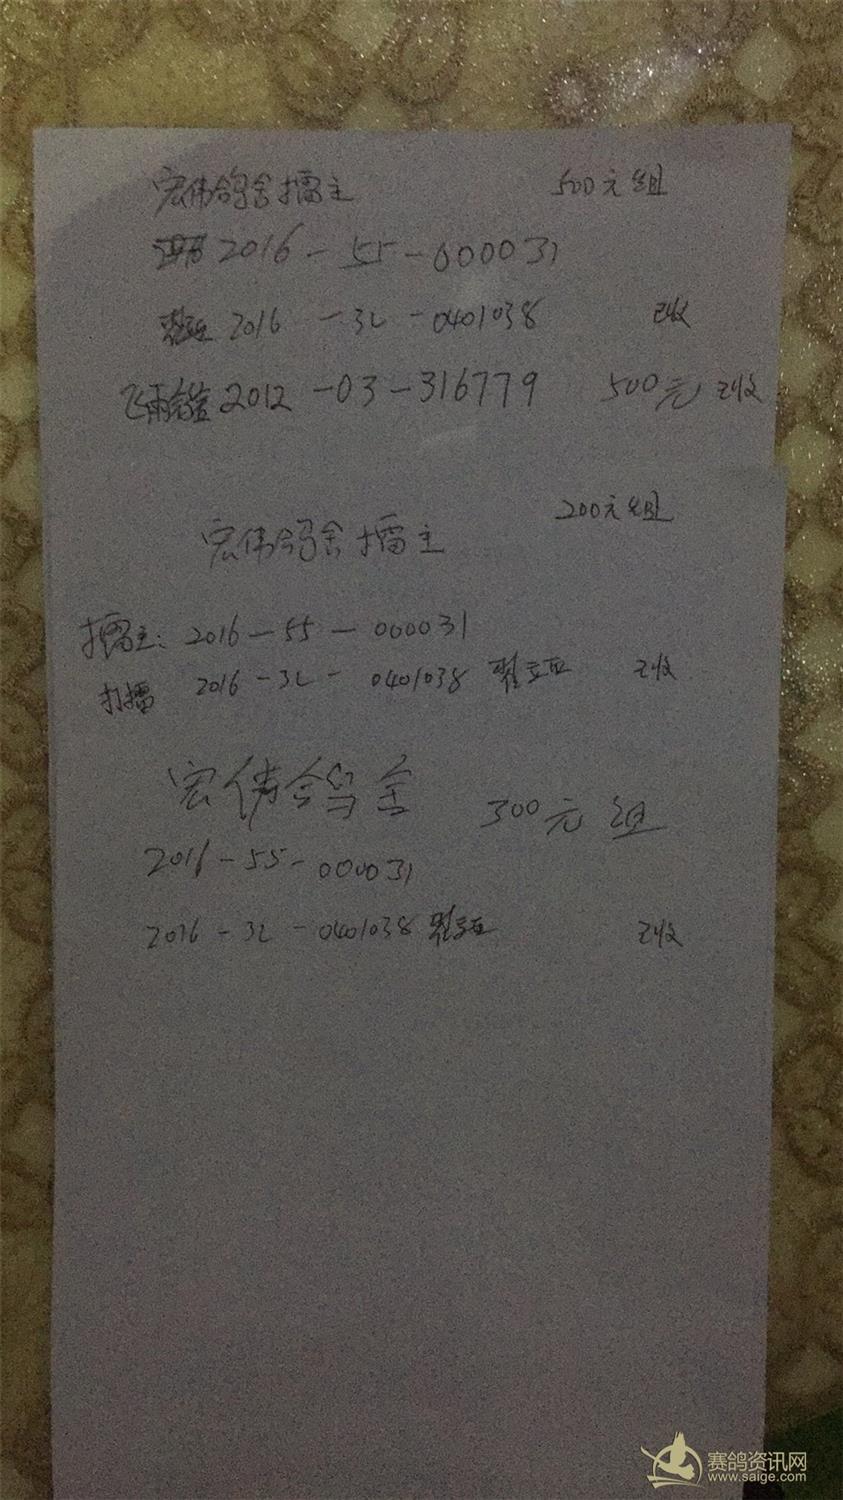 宏伟鸽舍擂主 500元组
2016-55-000031
2016-3L-0401038 已收
飞雨鸽舍 2012-03-316779 500元 已收
200元组
宏伟鸽舍擂主
擂主: 2016-55-000031
打擂 2016-3L-0401038 已收
宏伟鸽舍 300元组
2016-55-000031
2016-3L-0401038 已收
赛鸽资讯网
www.saige.com